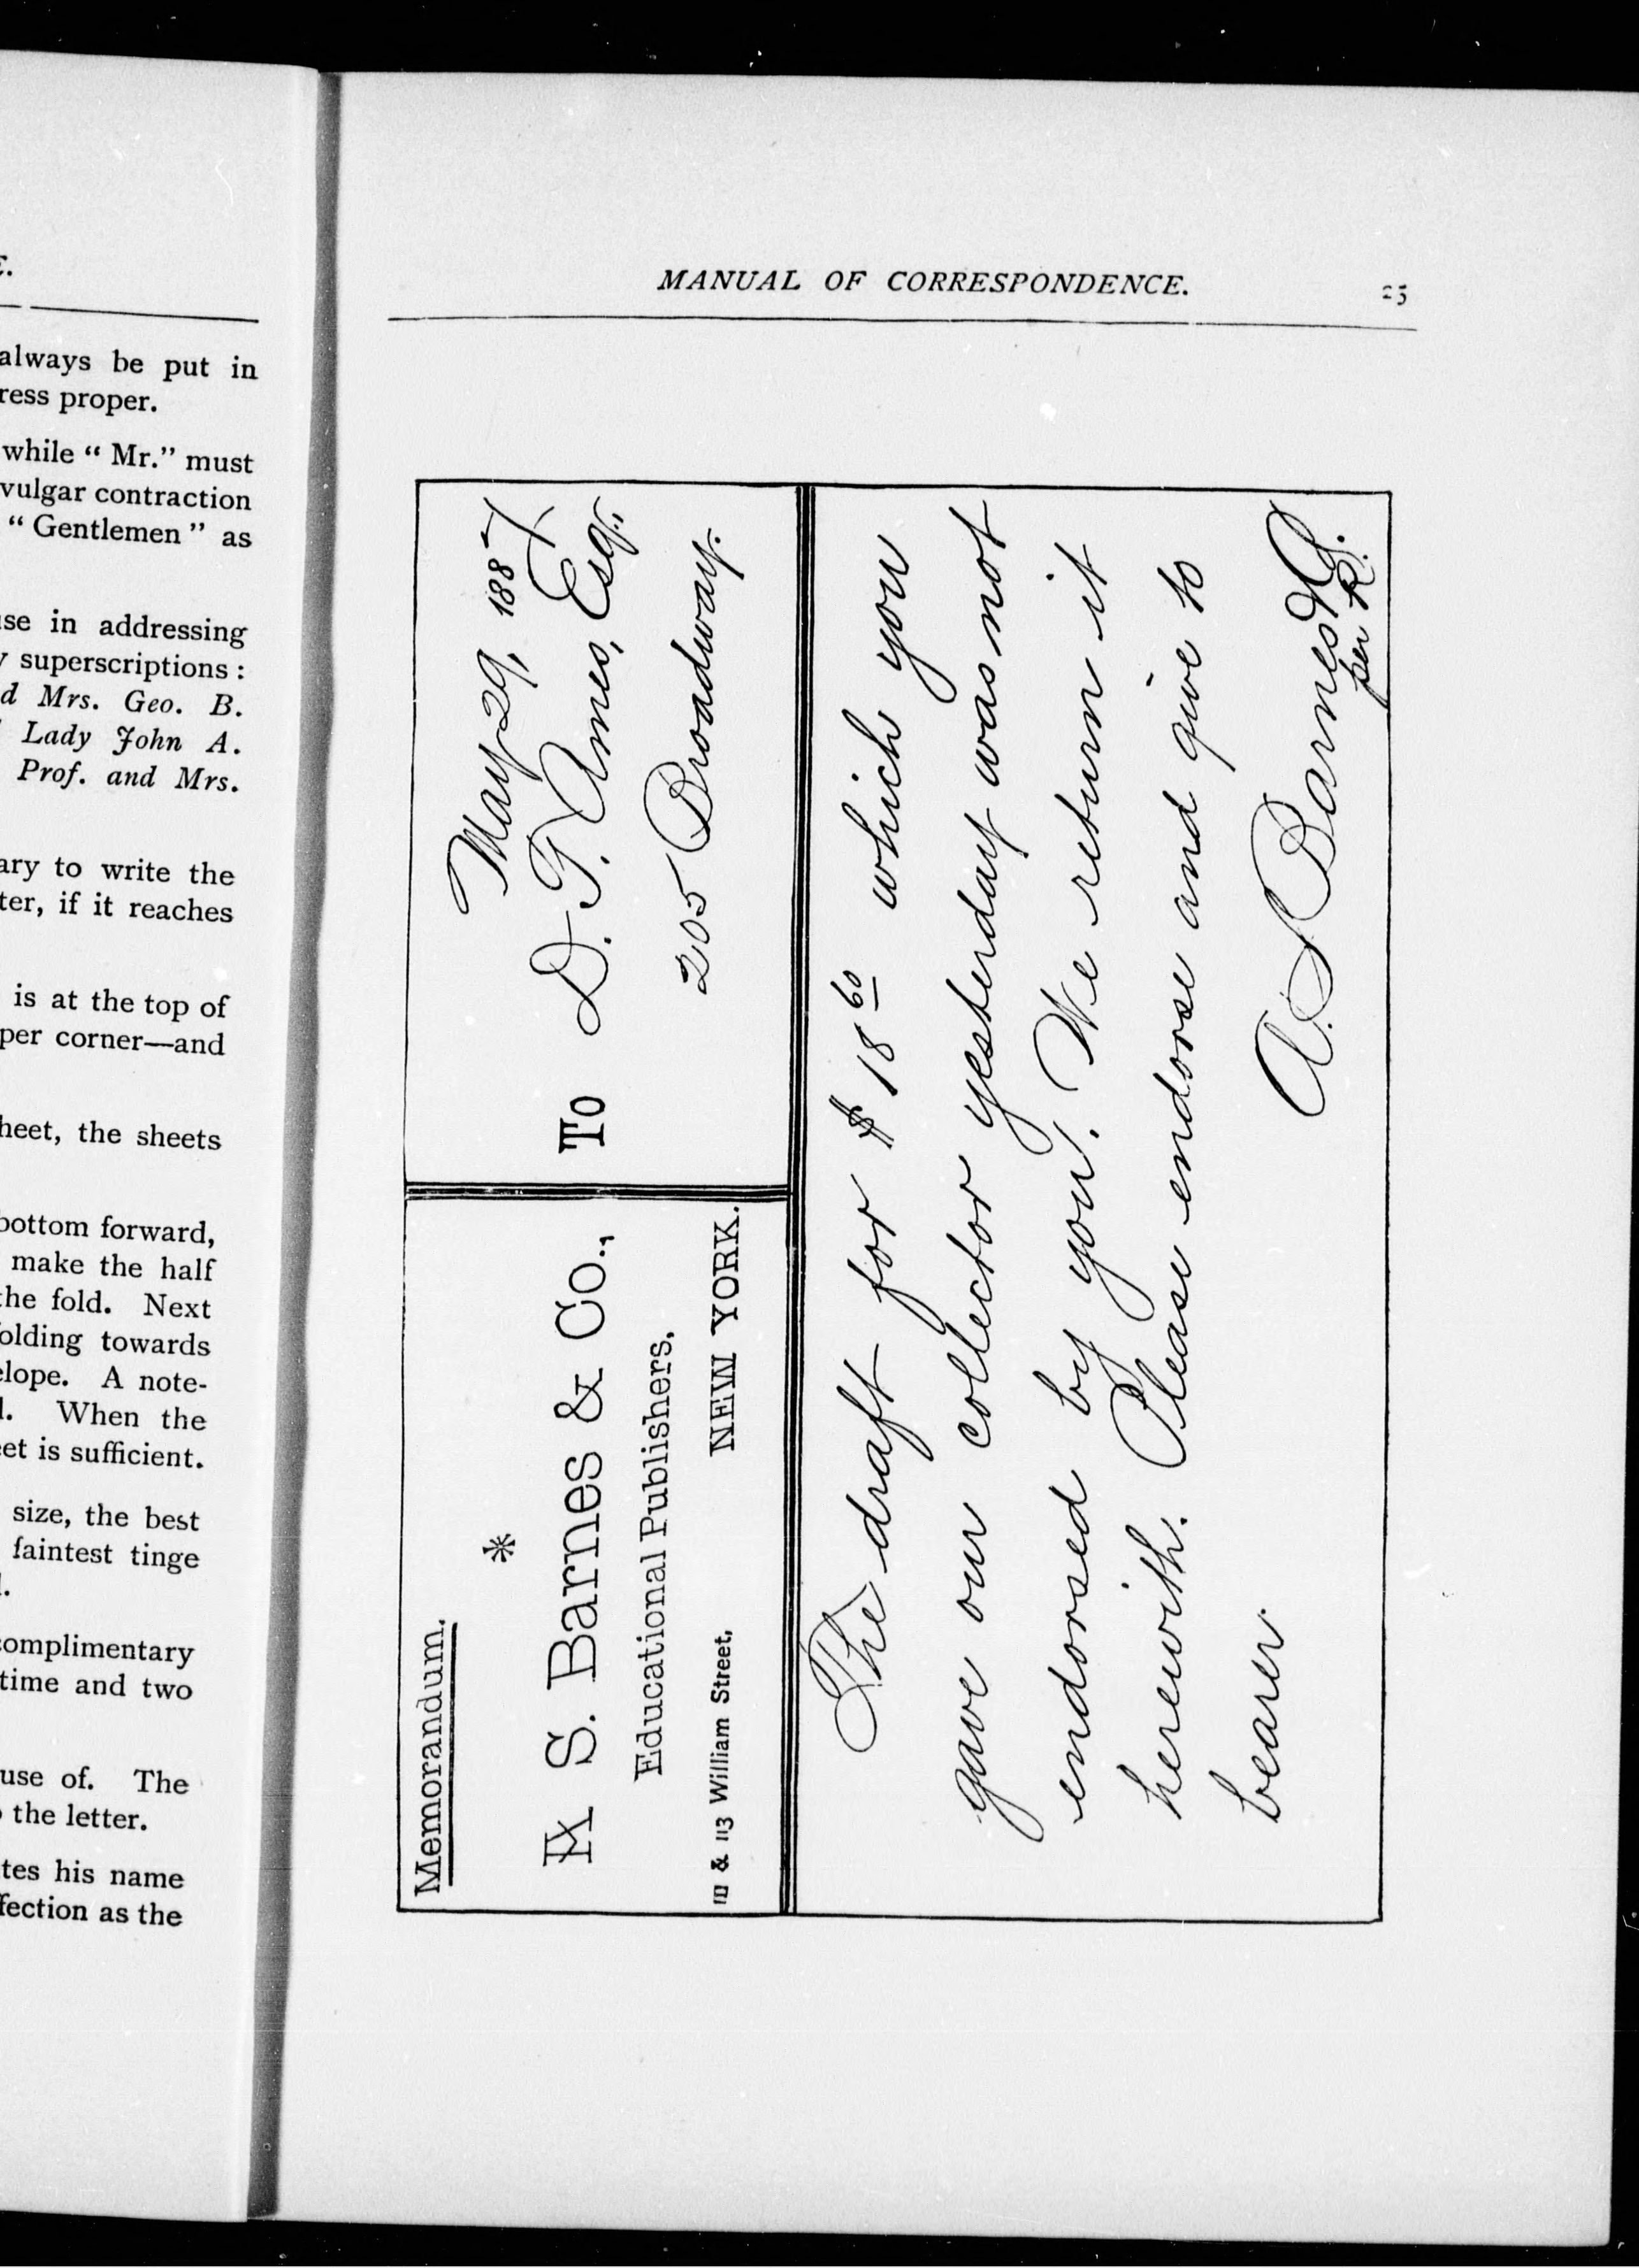 always be put in
ress proper.
while " Mr." must
vulgar contraction
" Gentlemen " as
se in addressing
superscriptions :
d Mrs. Geo. B.
Lady John A.
Prof. and Mrs.
ary to write the
ter, if it reaches
is at the top of
per corner—and
heet, the sheets
bottom forward,
make the half
the fold. Next
folding towards
elope. A note-
When the
eet is sufficient.
size, the best
faintest tinge
complimentary
time and two
use of. The
the letter.
tes his name
fection as the
MANUAL OF CORRESPONDENCE.
25
Memorandum.
*
A S. Barnes & Co.,
Educational Publishers,
111 & 113 William Street,
NEW YORK.
May 29, 1887
To D. T. Ames, Esq.,
205 Broadway.
The draft for $18 60 which you
gave our collector yesterday was not
endorsed by you. We return it
herewith. Please endorse and give to
bearer.
A. S Barnes & Co.
per R.